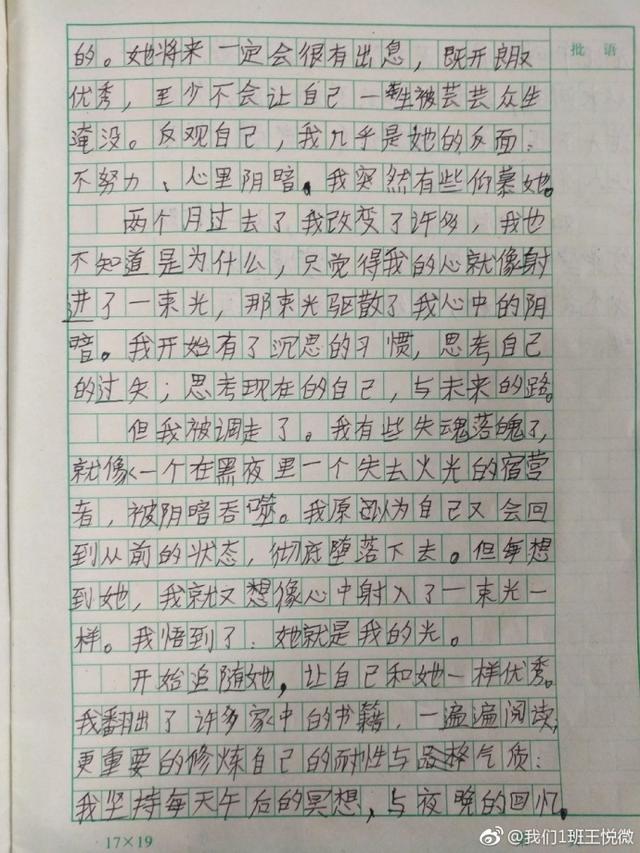 批语
的。她将来一定会很有出息，既开朗又
优秀，至少不会让自己一生被芸芸众生
淹没。反观自己，我几乎是她的反面：
不努力、心里阴暗。我突然有些仰慕她。
两个月过去了我改变了许多，我也
不知道是为什么，只觉得我的心就像射
进了一束光，那束光驱散了我心中的阴
暗。我开始有了沉思的习惯，思考自己
的过失；思考现在的自己，与未来的路。
但我被调走了。我有些失魂落魄了，
就像一个在黑夜里一个失去火光的宿营
者，被阴暗吞噬。我原以为自己又会回
到从前的状态，彻底堕落下去。但每想
到她，我就又想像心中射入了一束光一
样。我悟到了：她就是我的光。
开始追随她，让自己和她一样优秀。
我翻出了许多家中的书籍，一遍遍阅读，
更重要的修炼自己的耐性与品格气质：
我坚持每天午后的冥想，与夜晚的回忆，
17×19
@我们1班王悦微